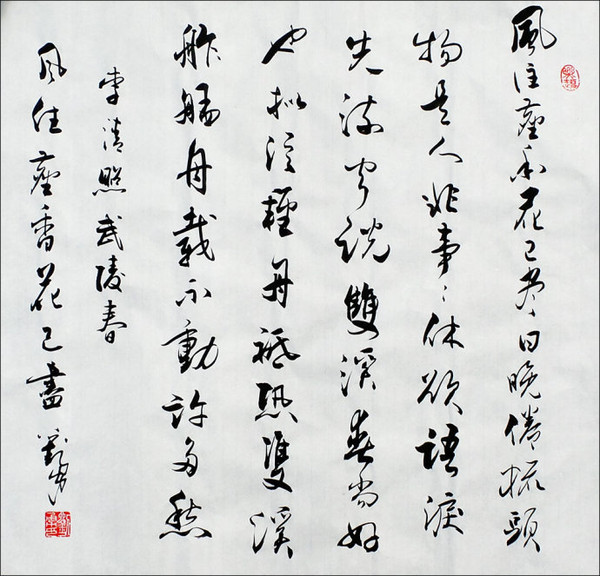 風住塵香花已尽日晚倦梳頭
物是人非事〻休欲語淚
先流聞說雙溪春尚好
也擬泛輕舟祗恐雙溪
舴艋舟載不動許多愁
李清照武陵春
風住塵香花已盡 劉